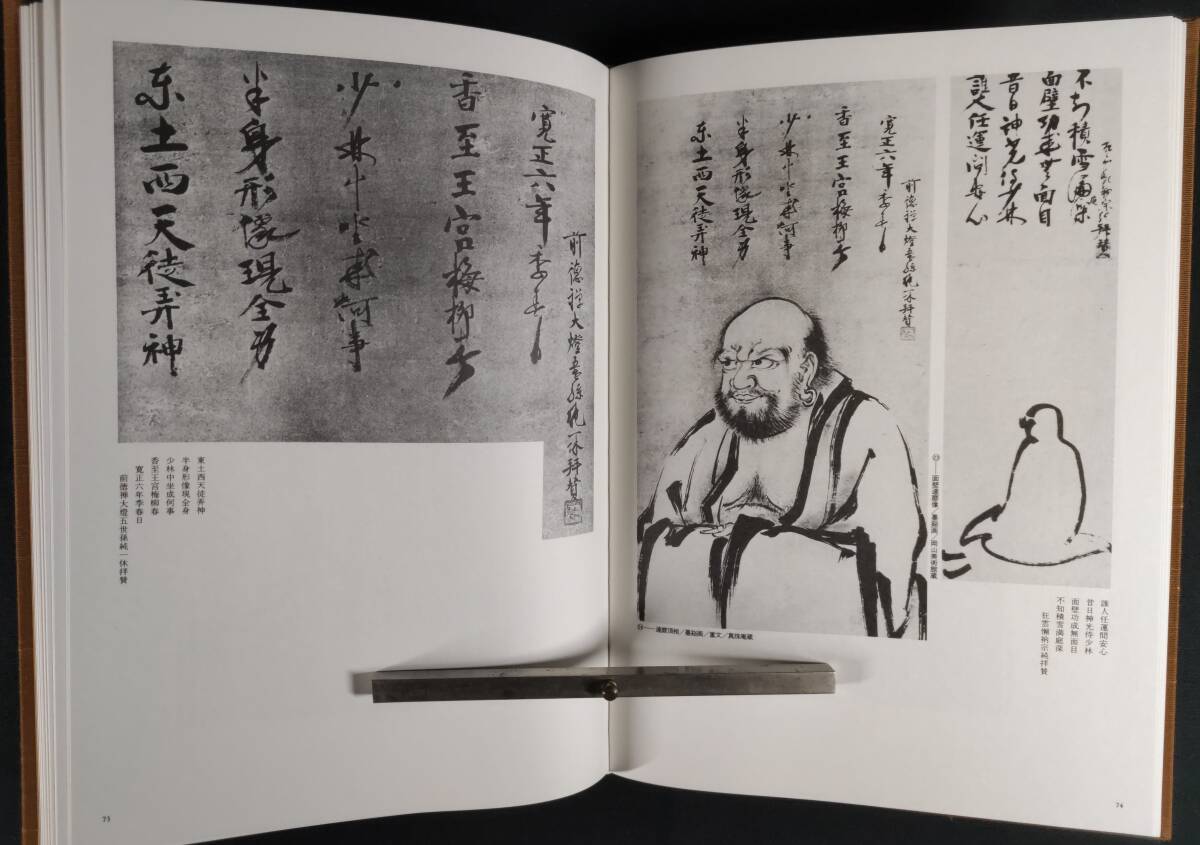 东土西天徒弄神
半身形像現全身
少林中坐成何事
香至王宮梅柳春
寛正六年季春日
前徳禅大燈五世孫純一休拝賛
東土西天徒弄神
半身形像現全身
少林中坐成何事
香至王宮梅柳春
寛正六年季春日
前徳禅大燈五世孫純一休拝賛
73
东土西天徒弄神
半身形像現全身
少林中坐成何事
香至王宮梅柳春
寛正六年季春日
前徳禅大燈五世孫純一休拝賛
㉔——達磨頂相/墨絵画/重文/真珠庵蔵
誰人任運問安心
昔日神光侍少林
面壁功成無面目
不知積雪満庭深
狂雲懶衲宗純拝賛
㉓——面壁達磨像/墨絵画/岡山美術館蔵
誰人任運問安心
昔日神光侍少林
面壁功成無面目
不知積雪満庭深
狂雲懶衲宗純拝賛
74